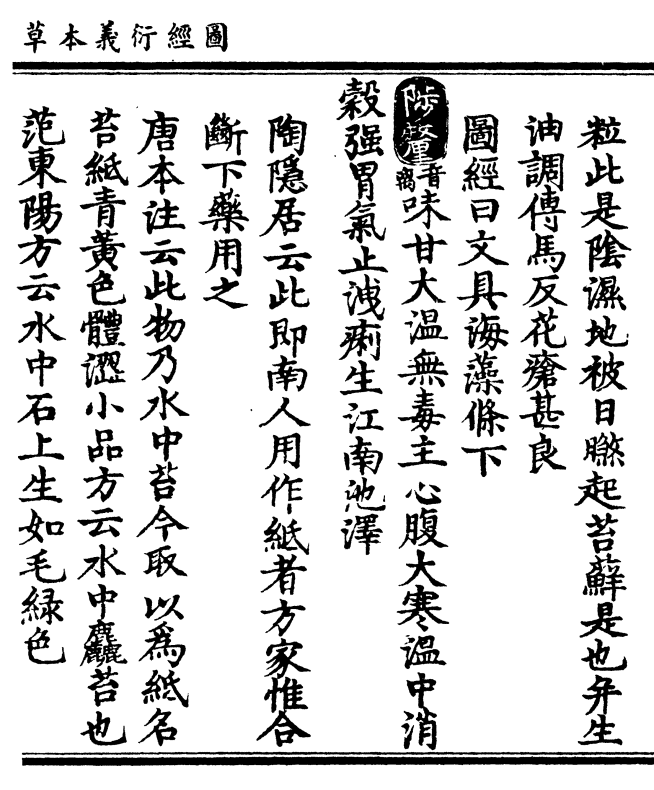 圖經衍義本草
粒此是陰濕地被日曝起苔蘚是也并生
油調傅馬反花瘡甚良
圖經曰文具海藻條下
陟釐音离味甘大温無毒主心腹大寒温中消
穀强胃氣止洩痢生江南池澤
陶隱居云此即南人用作紙者方家惟合
斷下藥用之
唐本注云此物乃水中苔今取以爲紙名
苔紙青黃色體澀小品方云水中麤苔也
范東陽方云水中石上生如毛緑色